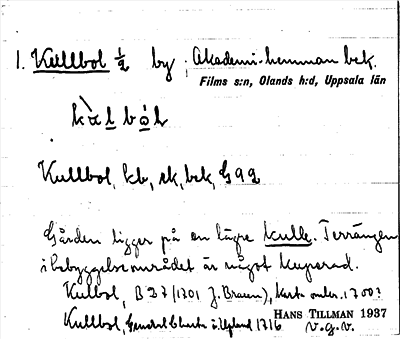 1. Kullbol ½ by ; Akademi-hemman bek.
Films s:n, Olands h:d, Uppsala län
kàlból
Kullbol, kb, sk, bek, G 92
Gården ligger på en lägre kulle. Terrängen
i bebyggelseområdet är något kuperad.
Kulbol, B 27/1701 J. Braun), karta omkr. 1700?
Kullbol, General Charta ü. Upland 1716
HANS TILLMAN 1937
v.g.v.